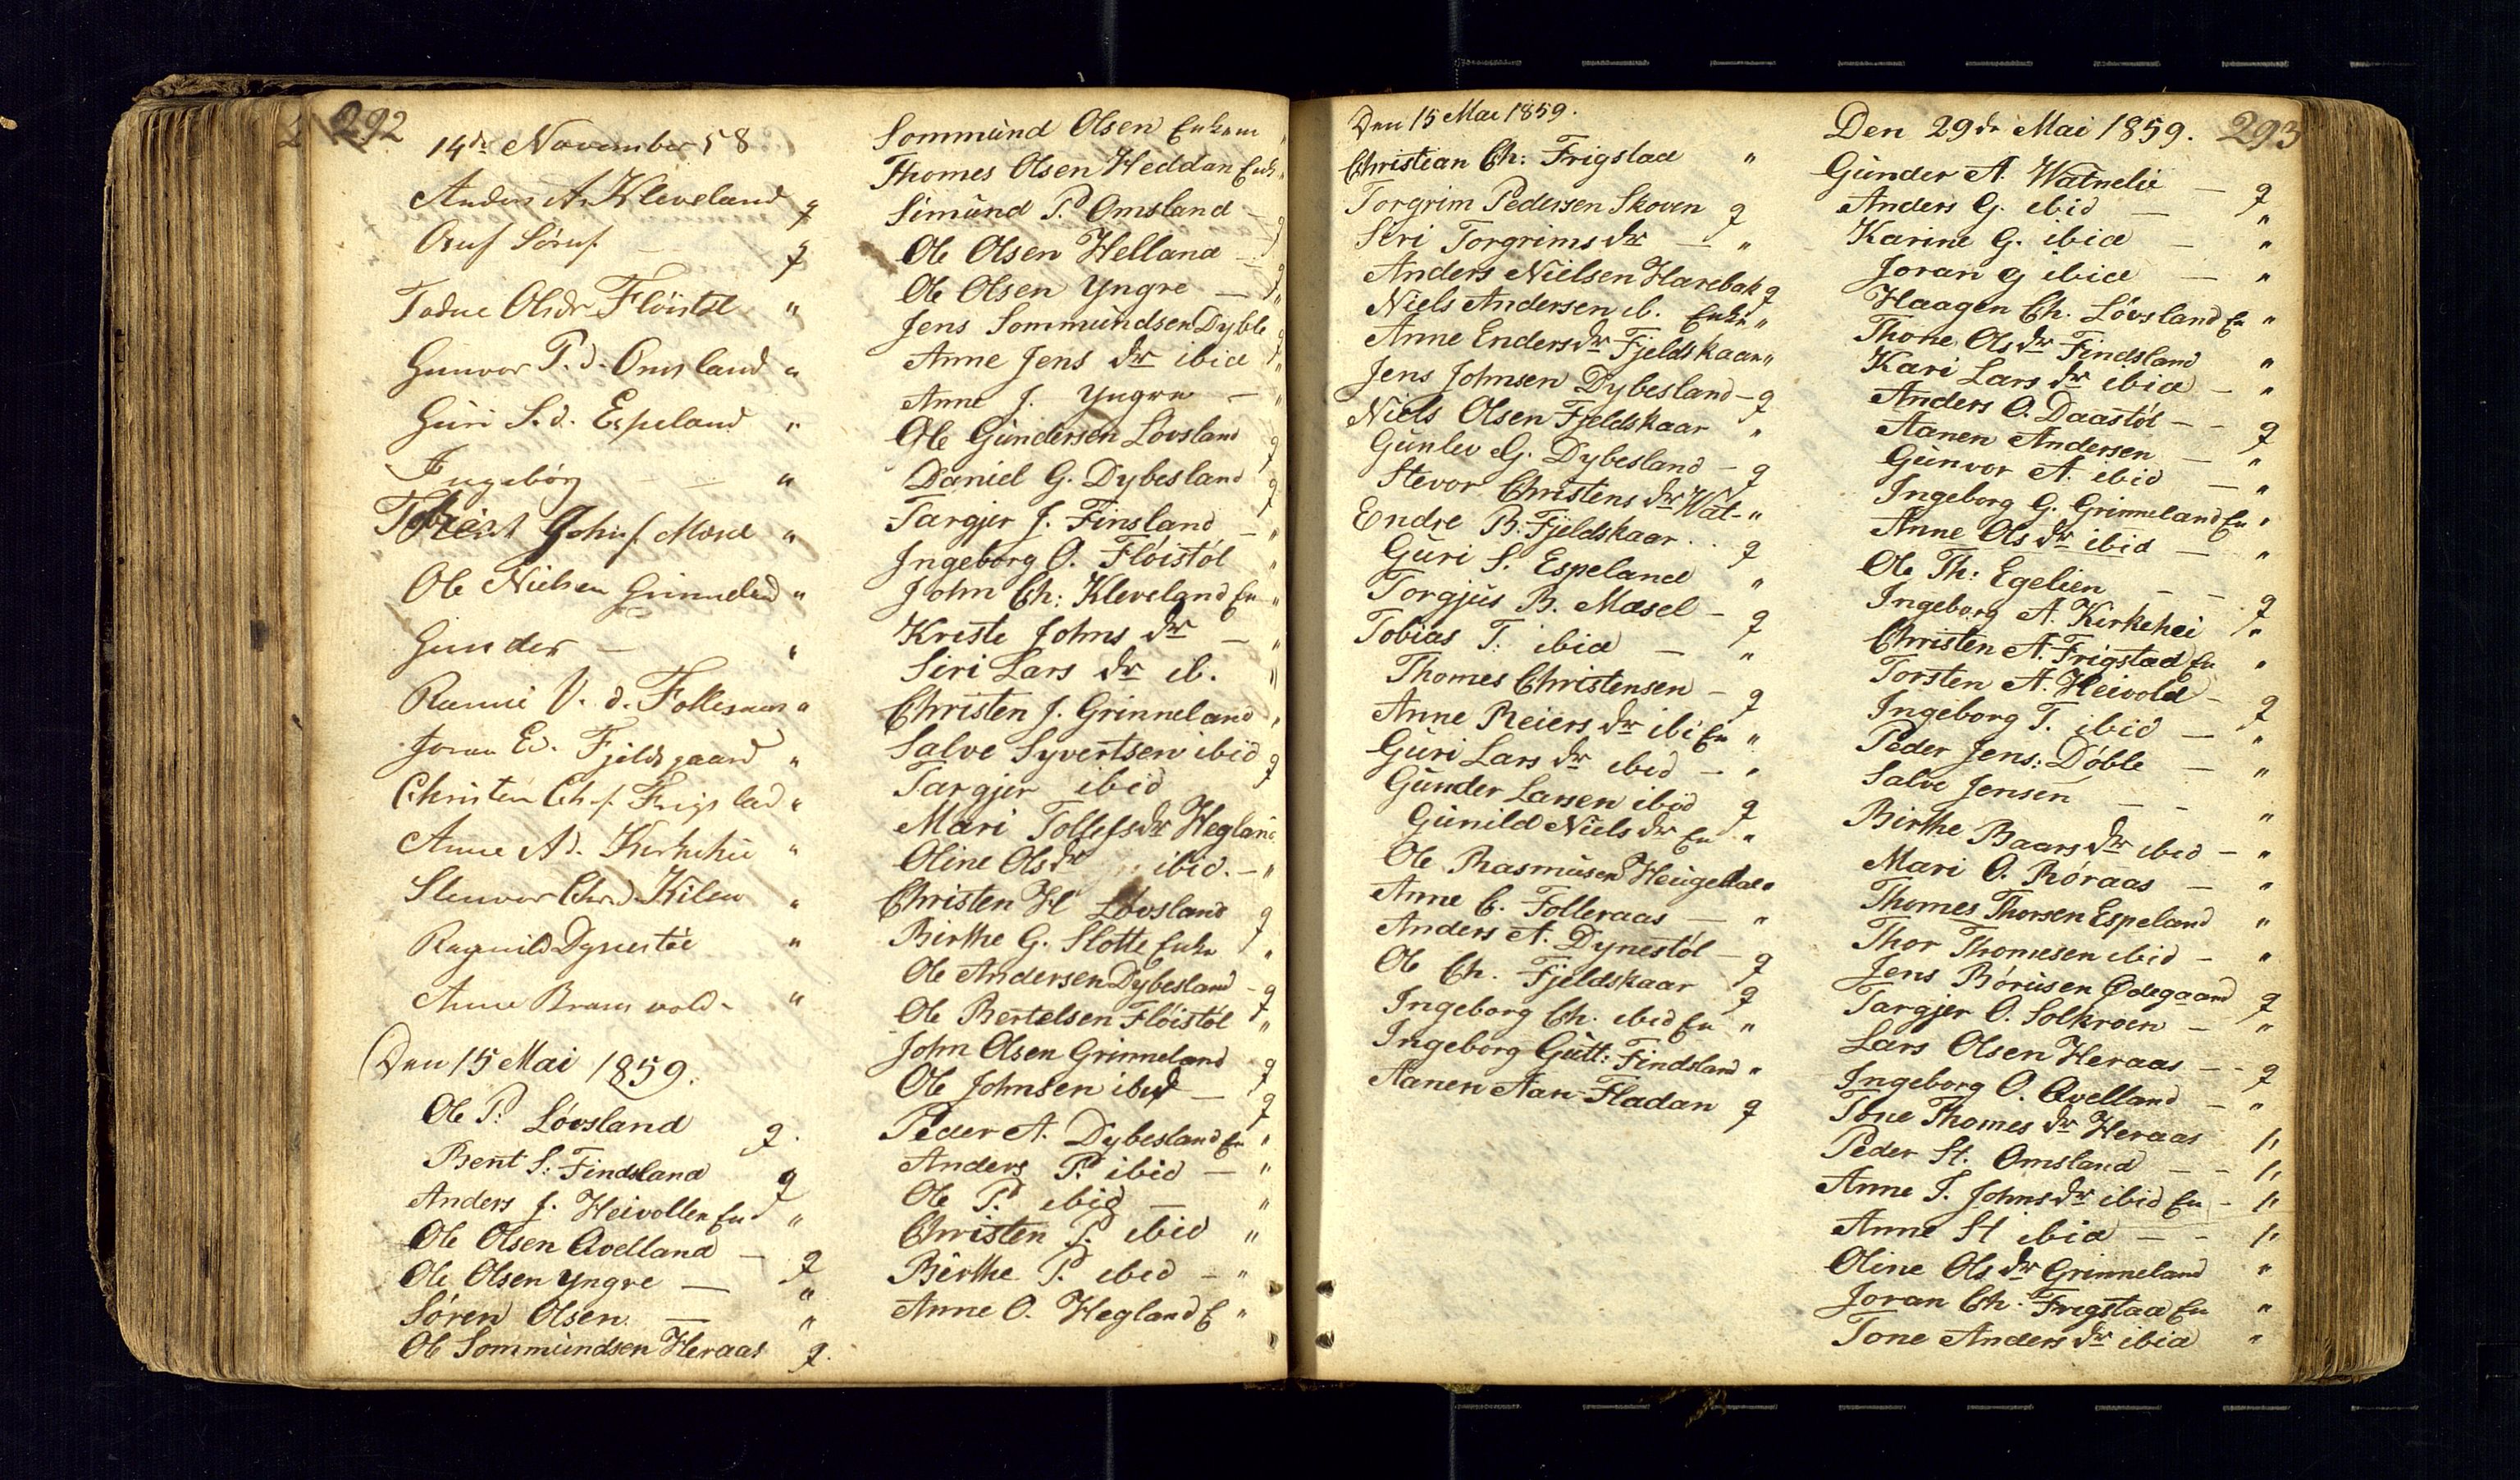 292
14de November 58
Anders A. Kleveland g
Oluf Sørns. — g
Todne Olsdr Fløistøl "
Gunvor P. d. Omsland "
Guri S. d. Espeland "
Ingeborg — — "
Tobias Johns. Mosel "
Ole Nielsen Grinneland "
Gunder — "
Rannei V. d. Follesaas "
Joran Ed. Fjeldsgaard "
Christen Chs. Frigstad "
Anne Ad. Kirkehei "
Stenvor Chr.d. Kilen "
Ragnild Dynestøl "
Anne Bramvold - "
Den 15 Mai 1859.
Ole P. Løvsland g.
Bent S. Findsland g
Anders J. Heivollen En "
Ole Olsen Qvelland — g
Ole Olsen Yngre — "
Søren Olsen. — "
Ole Sommundsen Heraas g.
Sommund Olsen Enkem "
Thomes Olsen Heddan Enk "
Simund P. Omsland — g
Ole Olsen Helland — g
Ole Olsen Yngre — "
Jens Sommundsen Dyble g
Anne Jens dr ibid "
Anne J. Yngre — "
Ole Gundersen Lovsland g
Daniel G. Dybesland g
Targjer J. Finsland — "
Ingeborg O. Fløistøl "
John Ch: Kleveland En "
Kriste Johns dr — "
Siri Lars dr ib. "
Christen J. Grinneland "
Salve Syvertsen ibid g
Targjer ibid
Mari Tollefsdr Hegland
Oline Olsdr ibid. — "
Christen H Løvsland g
Birthe G. Slotte Enke "
Ole Andersen Dybesland - g
Ole Bertelsen Fløistøl "
John Olsen Grinneland g
Ole Johnsen ibid — g
Peder A. Dybesland En "
Anders P. ibid — "
Ole P. ibid — "
Christen P. ibid "
Birthe P. ibid — "
Anne O. Hegland E "
Den 15 Mai 1859.
Christian Ch: Frigstad "
Torgrim Pedersen Skoven g
Siri Torgrims dr — "
Anders Nielsen Harebak g
Niels Andersen ib. Enke "
Anne Endersdr Fjeldskaar "
Jens Johnsen Dybesland — g
Niels Olsen Fjeldskaar "
Gunlev G. Dybesland — g
Stevor Christens dr Wat- "
Endre B. Fjeldskaar . . g
Guri S. Espeland "
Torgjus B. Mosel — g
Tobias T. ibid — "
Thomes Christensen — g
Anne Reiers dr ibi En "
Guri Lars dr ibid — "
Gunder Larsen ibid g
Gunild Niels dr En "
Ole Rasmusen Heugedal "
Anne C. Folleraas — "
Anders A. Dynestøl — g
Ole Ch. Fjeldskaar g
Ingeborg Ch. ibid En "
Ingeborg Gutt: Findsland "
Aanen Aan Fladan g
Den 29de Mai 1859. 293
Gunder A. Watnelie — g
Anders G. ibid — "
Karine G. ibid — "
Joran G ibid — "
Haagen Ch. Løvsland En "
Thone Ols dr Findsland "
Kari Lars dr ibid — "
Anders O. Daastøl — — g
Aanen Andersen — "
Gunvor A. ibid — "
Ingeborg G. Grinneland En "
Anne Ols dr ibid — "
Ole Th: Egelien — — g
Ingeborg A. Kirkehei "
Christen A. Frigstad En "
Torsten A. Heivold — g
Ingeborg T. ibid — "
Peder Jens: Døble — "
Salve Jensen — — "
Birthe Baars dr ibid — "
Mari O. Røraas — "
Thomes Thorsen Espeland "
Thor Thomesen ibid — "
Jens Børusen Ødegaard g
Targjer O. Solkroen — "
Lars Olsen Heraas — - g
Ingeborg O. Qvelland — "
Tone Thomes dr Heraas "
Peder St. Omsland — — "
Anne T. Johnsdr ibid En - "
Anne St ibid — - "
Oline Ols dr Grinneland "
Joran Ch. Frigstad En "
Tone Anders dr ibid "